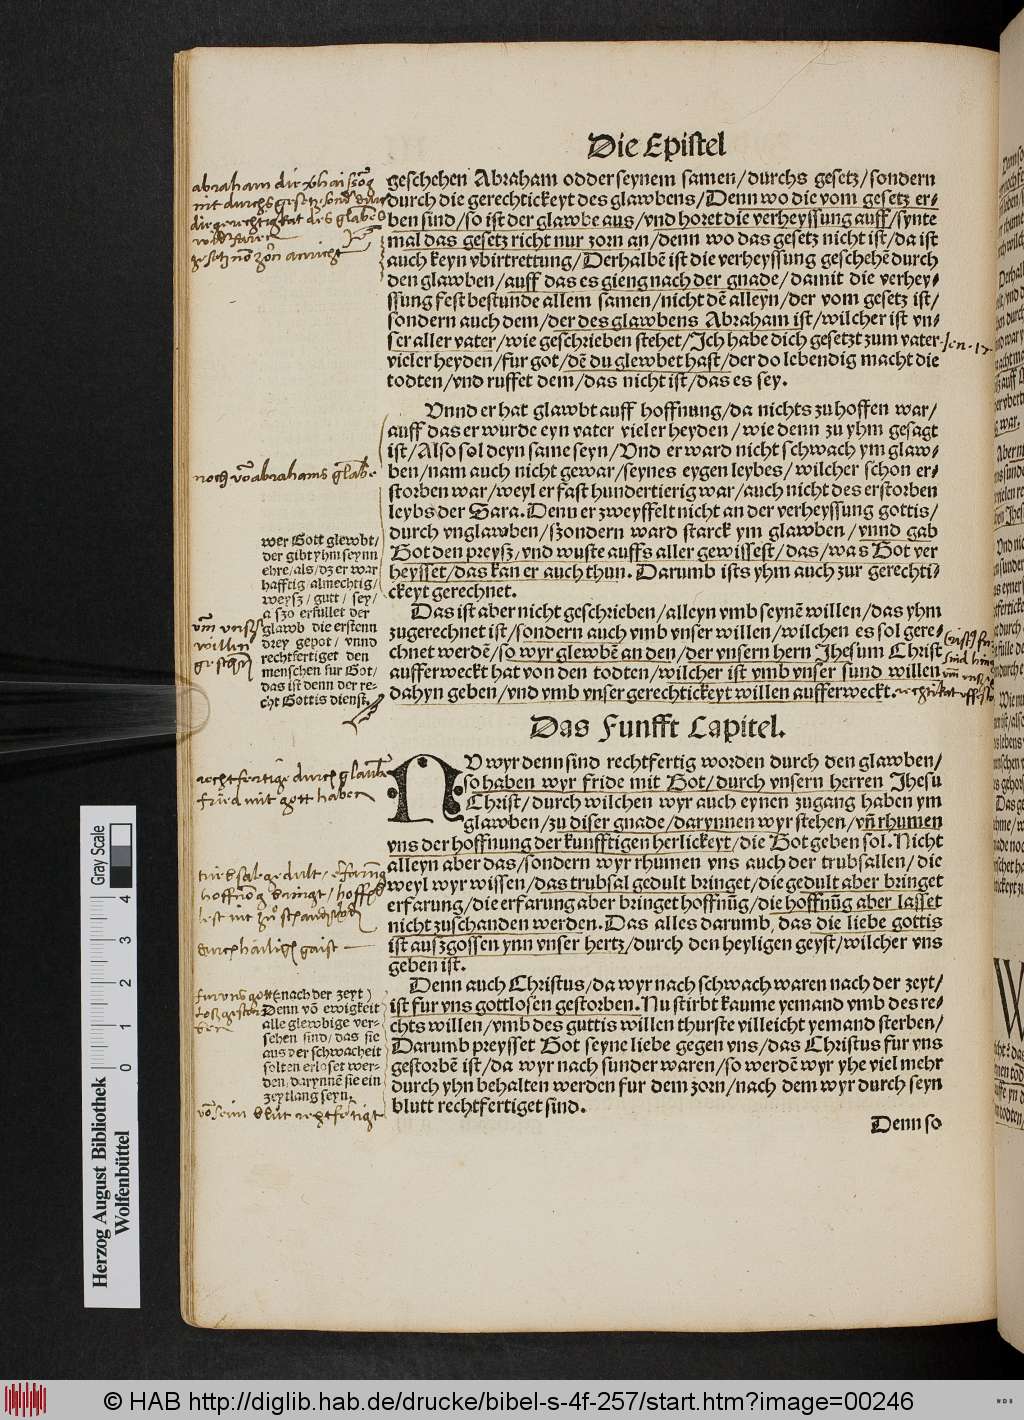 Die Epistel
geschehen Abraham odder seynem samen/durchs gesetz/sondern
durch die gerechtickeyt des glawbens/Denn wo die vom gesetz er-
ben sind/so ist der glawbe aus/vnd horet die verheyssung auff/synte
mal das gesetz richt nur zorn an/denn wo das gesetz nicht ist/da ist
auch keyn vbirtrettung/Derhalbē ist die verheyssung geschehē durch
den glawben/auff das es gieng nach der gnade/damit die verhey-
ssung fest bestunde allem samen/nicht dē alleyn/der vom gesetz ist/
sondern auch dem/der des glawbens Abraham ist/wilcher ist vn-
ser aller vater/wie geschrieben stehet/Ich habe dich gesetzt zum vater
vieler heyden/fur got/dē du glewbet hast/der do lebendig macht die
todten/vnd ruffet dem/das nicht ist/das es sey.
Vnnd er hat glawbt auff hoffnung/da nichts zu hoffen war/
auff das er wurde eyn vater vieler heyden/wie denn zu yhm gesagt
ist/Also sol deyn same seyn/Vnd er ward nicht schwach ym glaw-
ben/nam auch nicht gewar/seynes eygen leybes/wilcher schon er-
storben war/weyl er fast hundertierig war/auch nicht des erstorben
leybs der Sara. Denn er zweyffelt nicht an der verheyssung gottis/
durch vnglawben/szondern ward starck ym glawben/vnnd gab
Got den preysz/vnd wuste auffs aller gewissest/das/was Got ver
heysset/das kan er auch thun. Darumb ists yhm auch zur gerechti-
ckeyt gerechnet.
wer Gott glewbt/
der gibt yhm seynn
ehre/als/dz er war
hafftig almechtig/
weysz/gutt/sey/
a szo erfullet der
glawb die erstenn
drey gepot/vnnd
rechtfertiget den
menschen fur Got/
das ist denn der re-
cht Gottis dienst.
Das ist aber nicht geschrieben/alleyn vmb seynē willen/das yhm
zugerechnet ist/sondern auch vmb vnser willen/wilchen es sol gere-
chnet werdē/so wyr glewbē an den/der vnsern hern Jhesum Christ
aufferweckt hat von den todten/wilcher ist vmb vnser sund willen
dahyn geben/vnd vmb vnser gerechtickeyt willen aufferweckt.
Das Funfft Capitel.
NU wyr denn sind rechtfertig worden durch den glawben/
so haben wyr fride mit Got/durch vnsern herren Jhesu
Christ/durch wilchen wyr auch eynen zugang haben ym
glawben/zu diser gnade/darynnen wyr stehen/vñ rhumen
vns der hoffnung der kunfftigen herlickeyt/die Got geben sol. Nicht
alleyn aber das/sondern wyr rhumen vns auch der trubsallen/die
weyl wyr wissen/das trubsal gedult bringet/die gedult aber bringet
erfarung/die erfarung aber bringet hoffnūg/die hoffnūg aber lasset
nicht zuschanden werden. Das alles darumb, das die liebe gottis
ist auszgossen ynn vnser hertz/durch den heyligen geyst/wilcher vns
geben ist.
(nach der zeyt)
Denn vō ewigkeit
alle glewbige ver-
sehen sind/das sie
aus der schwacheit
solten erloset wer-
den/darynnē sie ein
zeytlang seyn.
Denn auch Christus/da wyr nach schwach waren nach der zeyt/
ist fur vns gottlosen gestorben. Nu stirbt kaume yemand vmb des re-
chts willen/vmb des guttis willen thurste villeicht yemand sterben/
Darumb preysset Got seyne liebe gegen vns/das Christus fur vns
gestorbē ist/da wyr nach sunder waren/so werdē wyr yhe viel mehr
durch yhn behalten werden fur dem zorn/nach dem wyr durch seyn
blutt rechtfertiget sind.
Denn so
Herzog August Bibliothek
Wolfenbüttel
0 1 2 3 4
Gray Scale
© HAB http://diglib.hab.de/drucke/bibel-s-4f-257/start.htm?image=00246